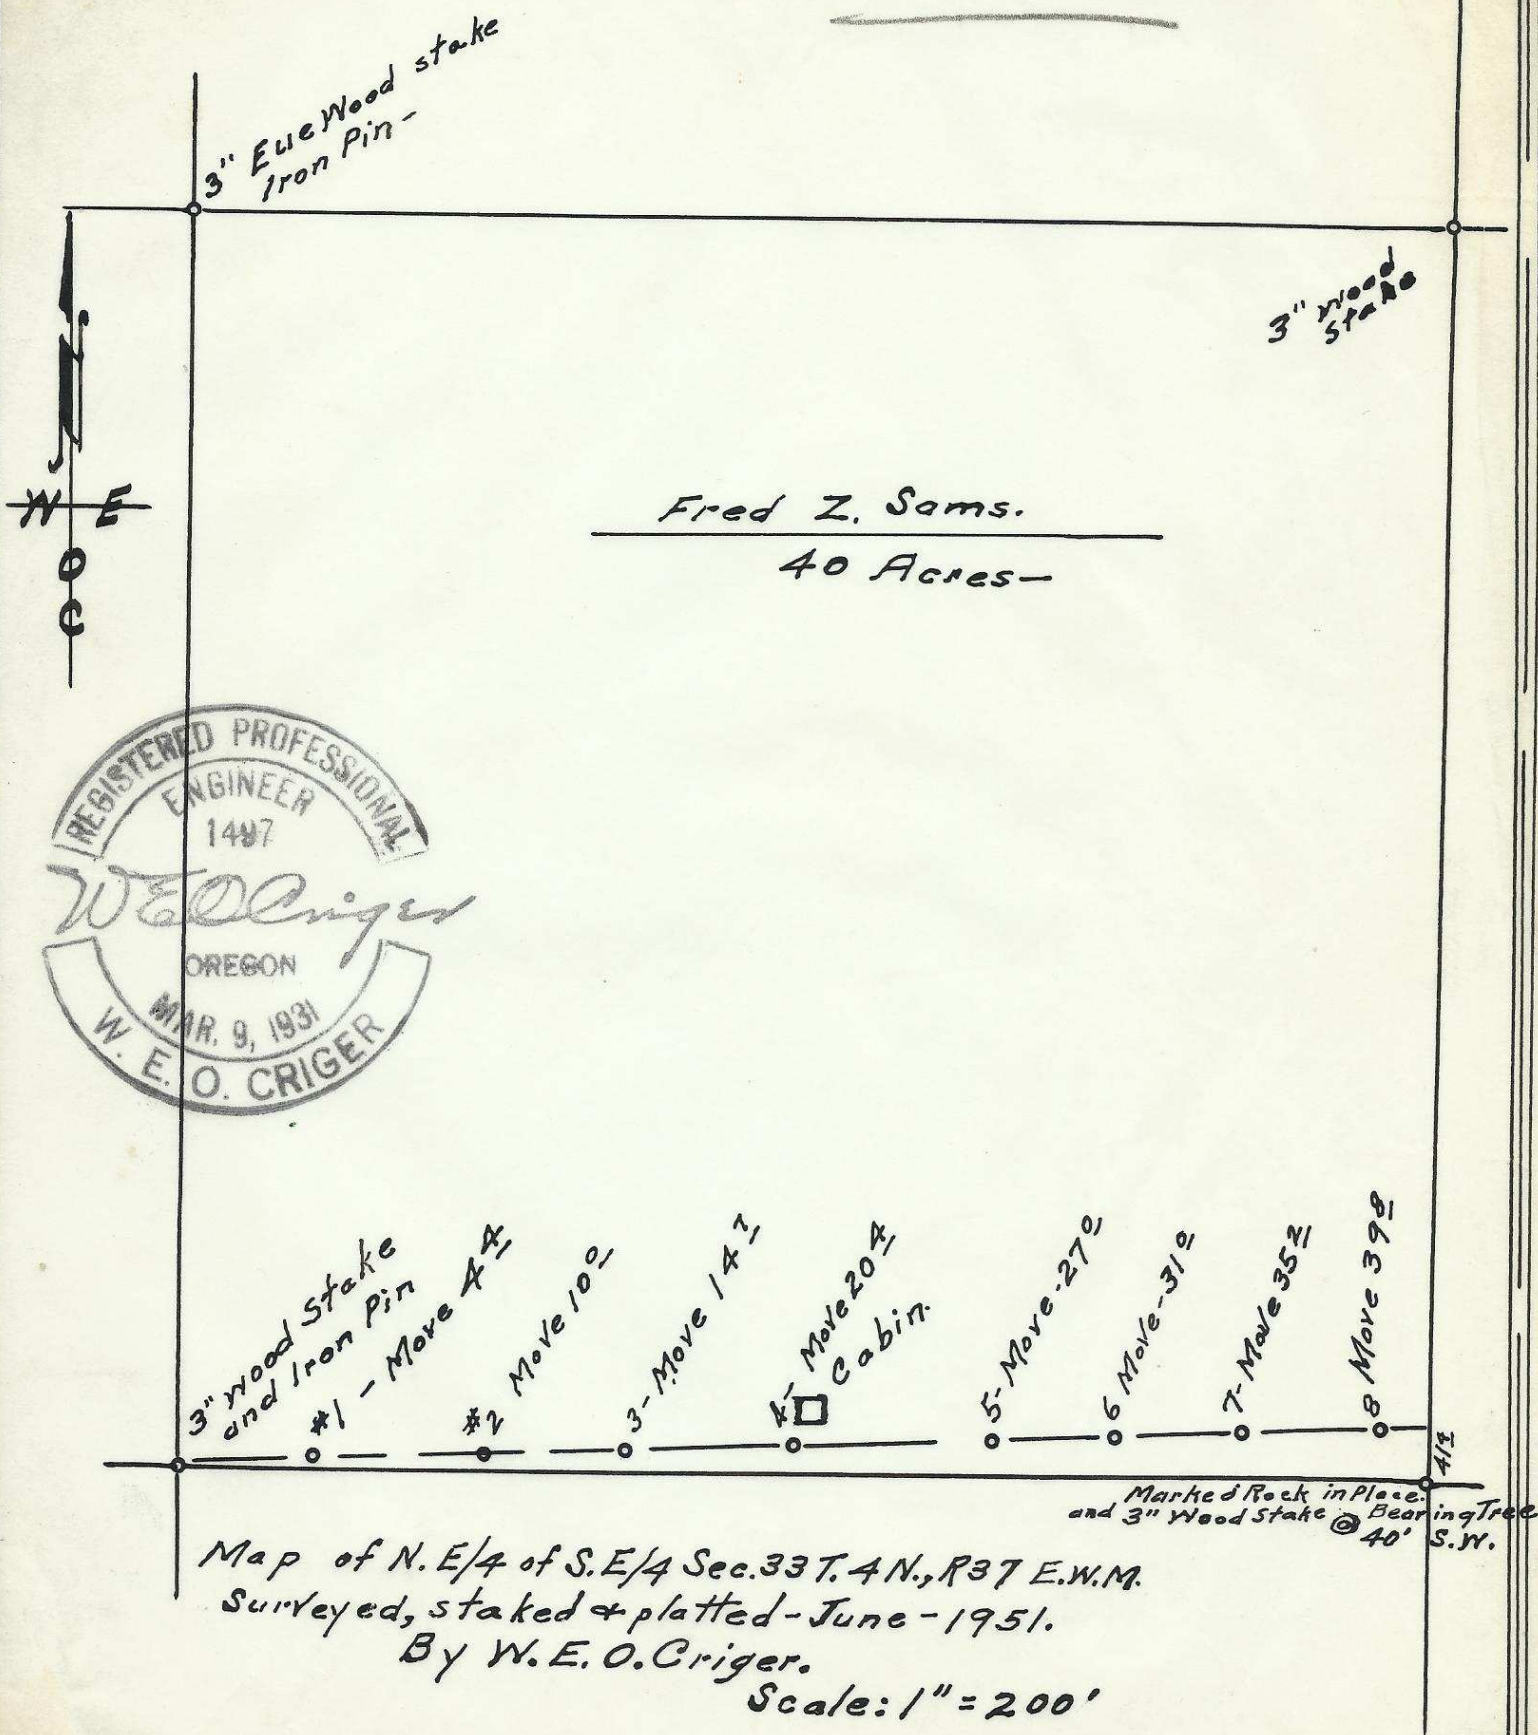 3" Eue Wood stake
Iron Pin-
3" Wood
Stake
N
W E
O
C
Fred Z. Sams.
40 Acres-
REGISTERED PROFESSIONAL
ENGINEER
1497
W E O Criger
OREGON
MAR. 9, 1931
W. E. O. CRIGER
3" Wood Stake
and Iron Pin
#1 - Move 4 4
#2 Move 10 0
3- Move 14 7
4- Move 20 4
Cabin.
5- Move-27 0
6 Move-31 0
7- Move 35 2
8 Move 39 8
Marked Rock in Place.
and 3" Wood Stake @ Bearing Tree
40' S.W.
Map of N.E/4 of S.E/4 Sec.33 T.4N., R37 E.W.M.
Surveyed, staked & platted-June-1951.
By W.E.O.Criger.
Scale: 1"=200'